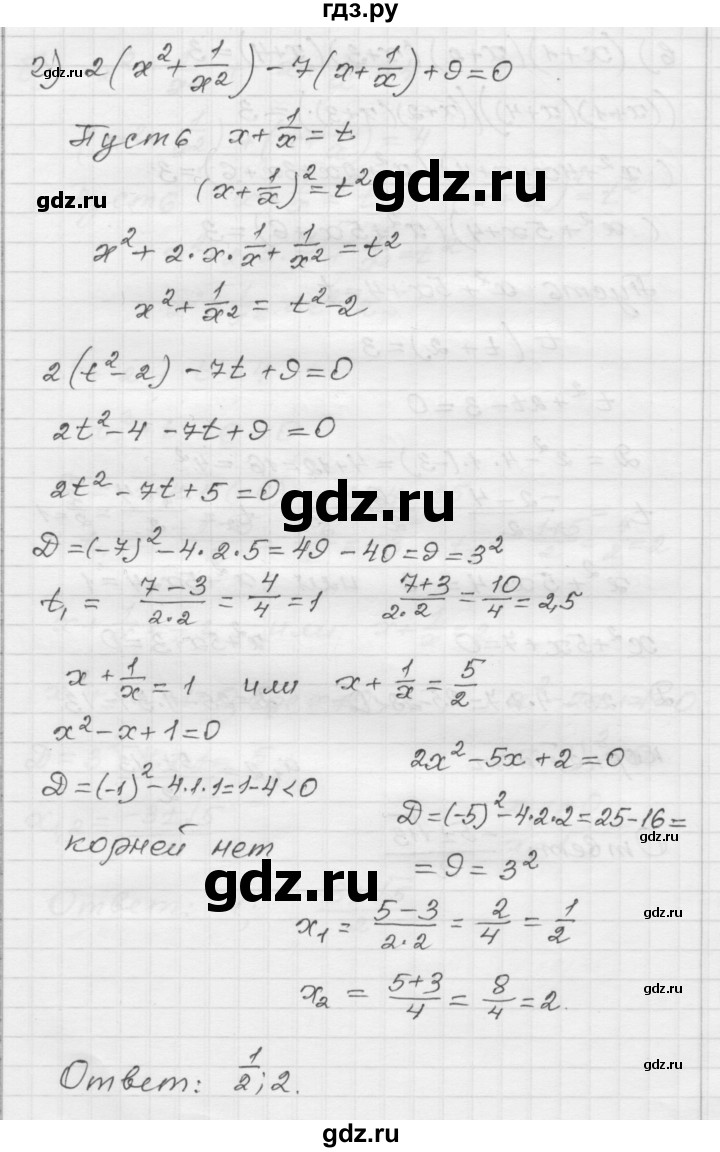 гдз.ру
г) 2(x² + 1/x²) - 7(x + 1/x) + 9 = 0
Пусть x + 1/x = t
(x + 1/x)² = t²
gdz.ru
gdz.ru
x² + 2 · x · 1/x + 1/x² = t²
x² + 1/x² = t² - 2
2(t² - 2) - 7t + 9 = 0
2t² - 4 - 7t + 9 = 0
2t² - 7t + 5 = 0
gdz.ru
D = (-7)² - 4 · 2 · 5 = 49 - 40 = 9 = 3²
t₁ = (7-3)/(2·2) = 4/4 = 1 (7+3)/(2·2) = 10/4 = 2,5
x + 1/x = 1 или x + 1/x = 5/2
x² - x + 1 = 0
2x² - 5x + 2 = 0
D = (-1)² - 4·1·1 = 1 - 4 < 0
D = (-5)² - 4·2·2 = 25 - 16 =
gdz.ru
корней нет
= 9 = 3²
gdz.ru
gdz.ru
x₁ = (5-3)/(2·2) = 2/4 = 1/2
x₂ = (5+3)/4 = 8/4 = 2.
gdz.ru
gdz.ru
Ответ: 1/2; 2.
gdz.ru